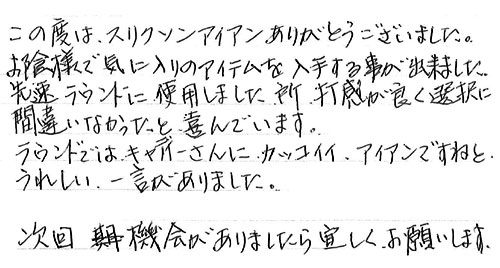 この度は、スリクソンアイアンありがとうございました。
お陰様で気に入りのアイテムを入手する事が出来ました。
先速ラウンドに使用しました所 打感が良く選択に
間違いなかったと喜んでいます。
ラウンドでは、キャディーさんに カッコイイ、アイアンですねと
うれしい、一言がありました。
次回 機会がありましたら宜しく、お願いします。